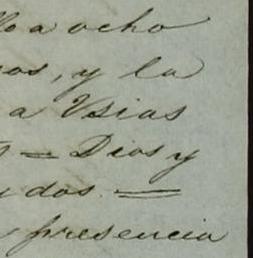 a ocho
os, y la
a Usias
= Dios y
dos =
presencia